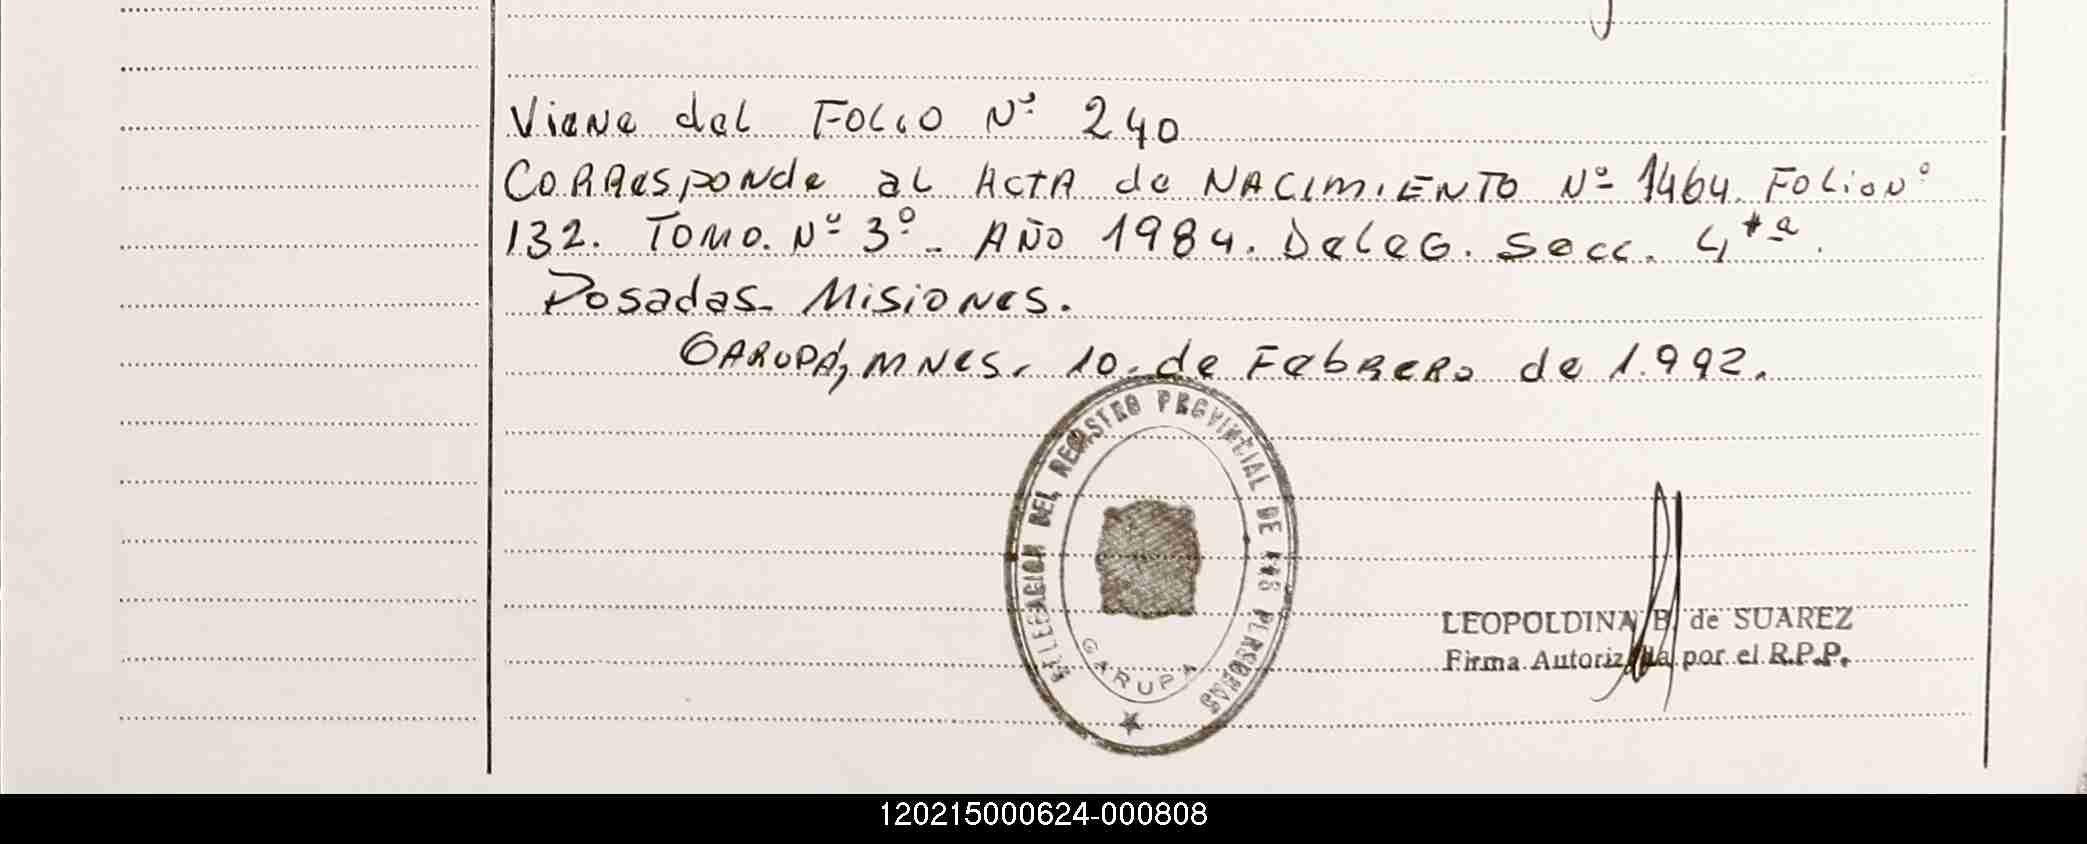 Viene del Folio Nº 240
Corresponde al Acta de Nacimiento Nº 1464. Folio Nº
132. Tomo. Nº 3º - Año 1984. Deleg. Secc. 4ta.
Posadas - Misiones.
Garupá, Mnes. 10. de Febrero de 1.992.
DELEGACION DEL REGISTRO PROVINCIAL DE LAS PERSONAS
GARUPA
LEOPOLDINA B. de SUAREZ
Firma Autorizada por el R.P.P.
120215000624-000808